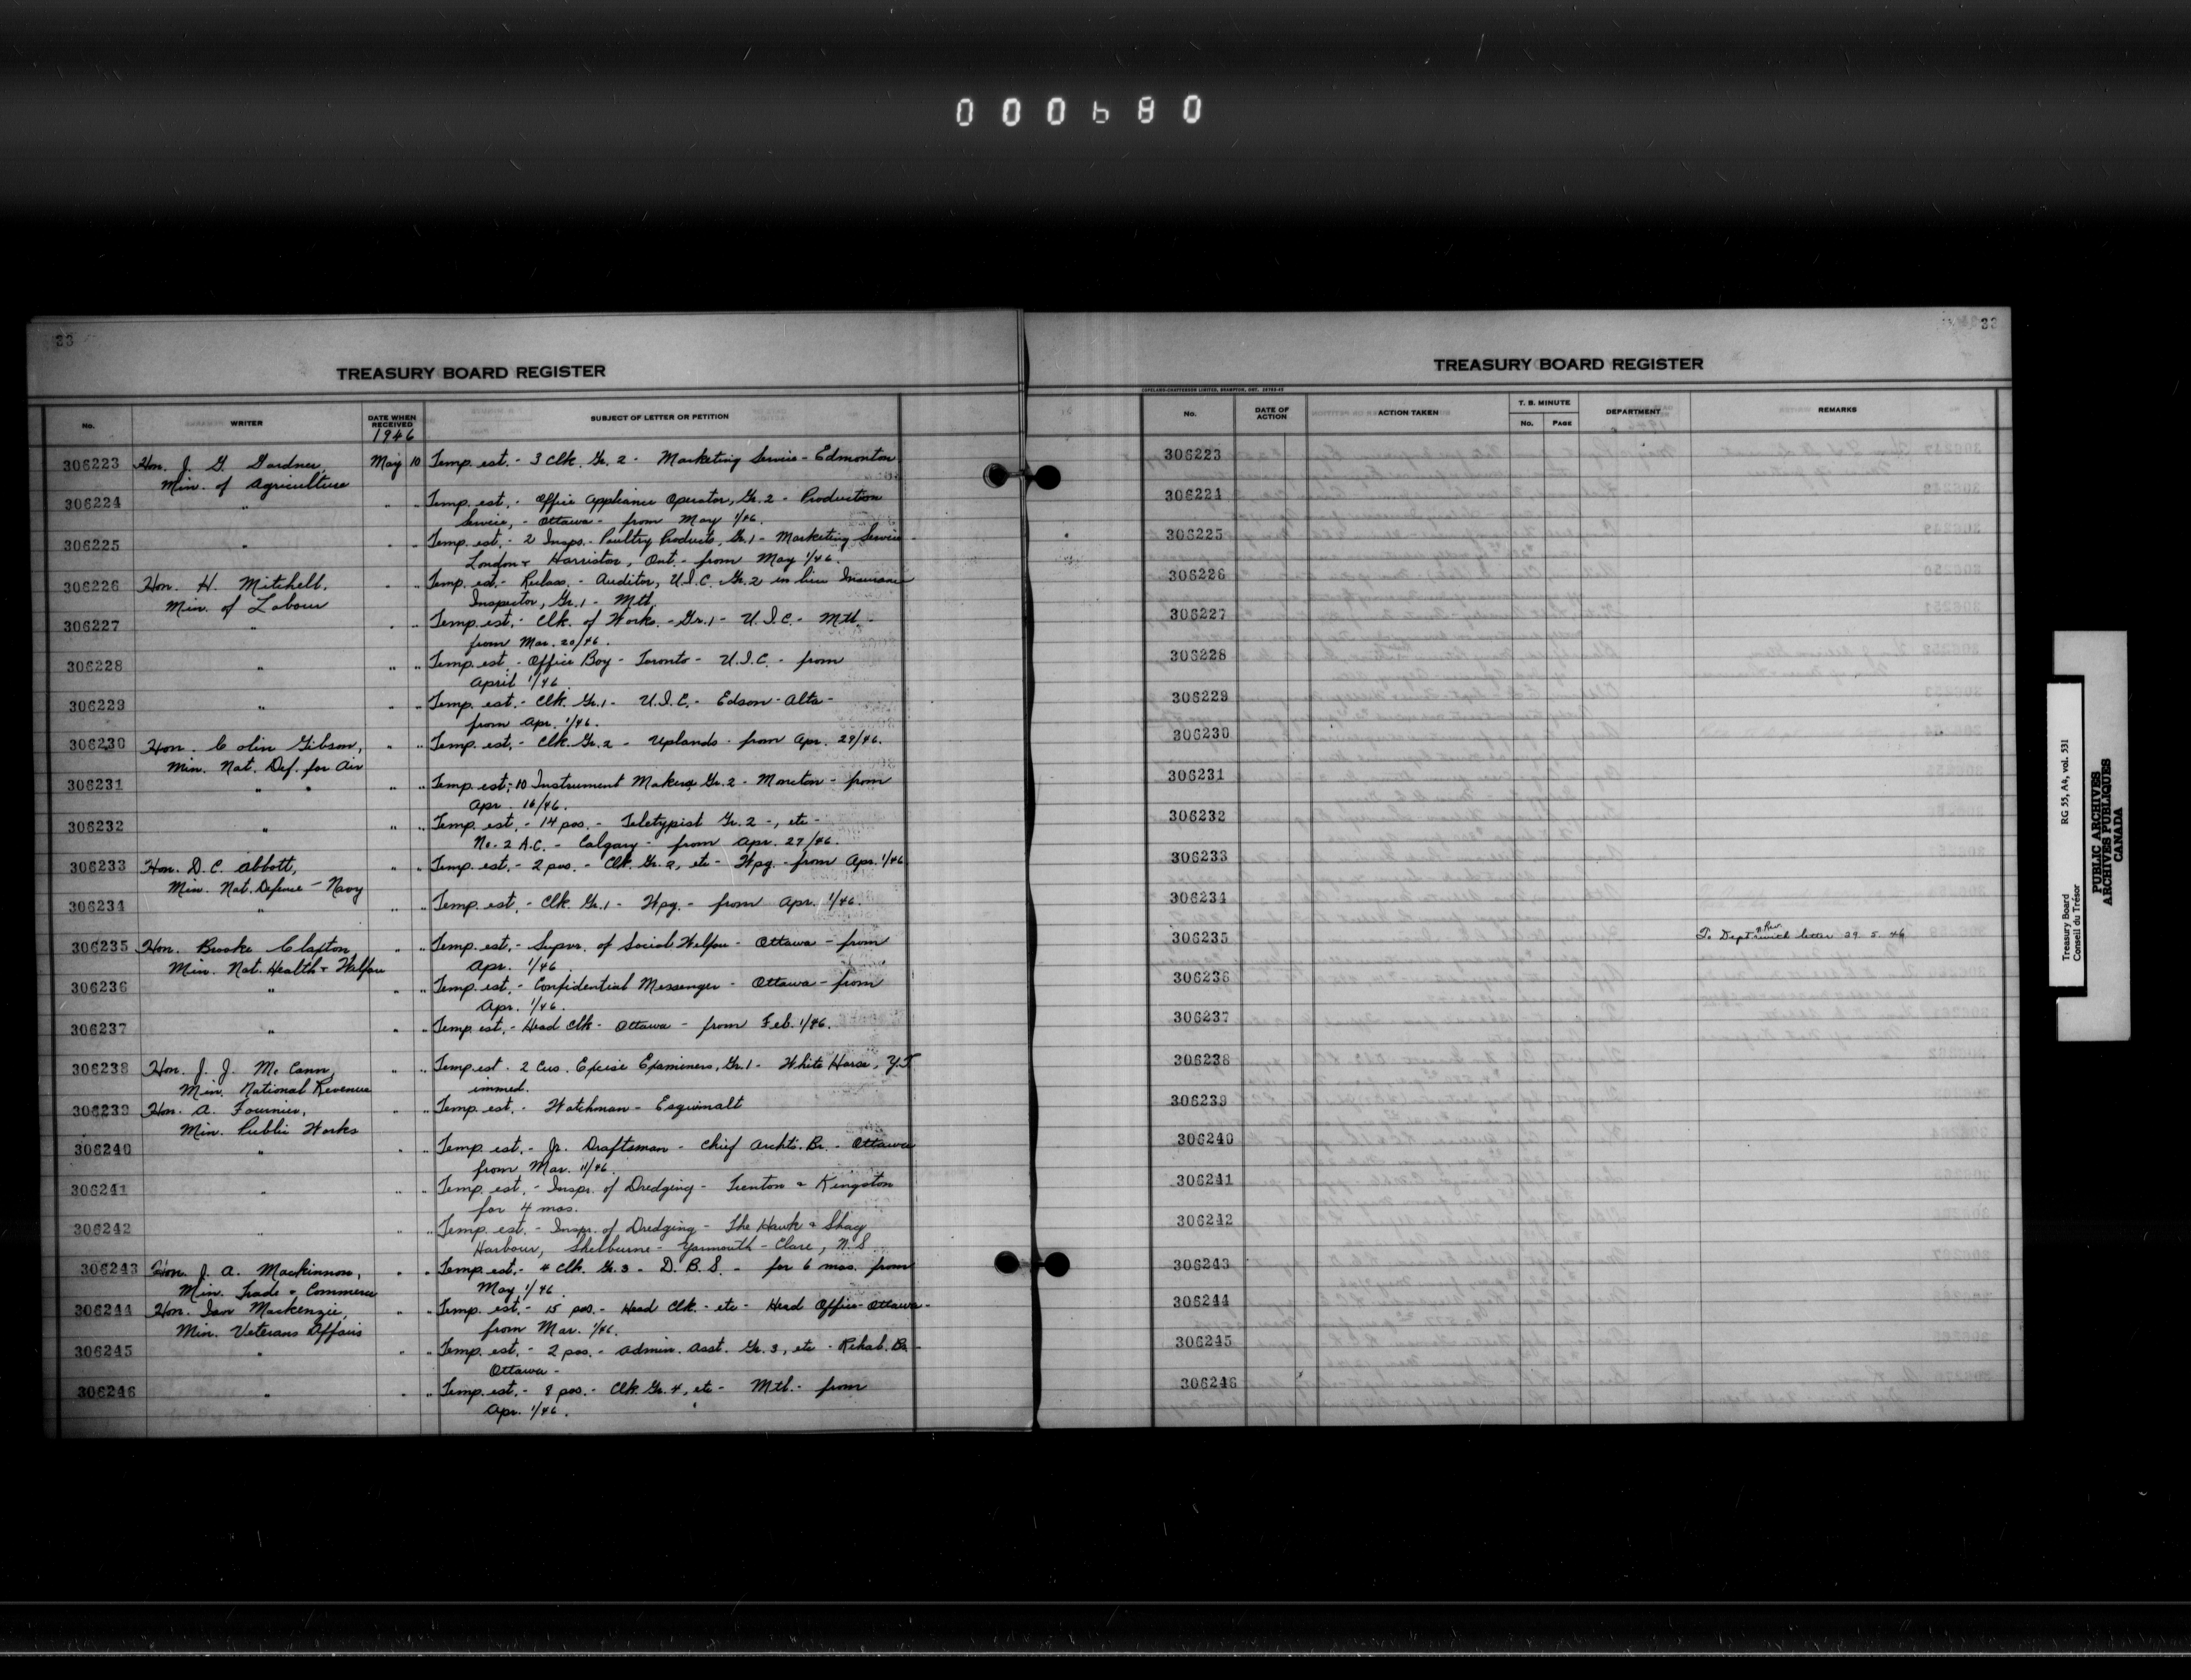 000680
33
TREASURY BOARD REGISTER
No. WRITER DATE WHEN RECEIVED SUBJECT OF LETTER OR PETITION
1946
306223 Hon. J. G. Gardner, May 10 Temp. est. - 3 Clk. Gr. 2 - Marketing Service - Edmonton
Min. of Agriculture
306224 " " " Temp. est. - Office Appliance Operator, Gr. 2 - Production
Service, - Ottawa - from May 1/46.
306225 " " " Temp. est. - 2 Insps. - Poultry Products, Gr. 1 - Marketing Service -
London & Harriston, Ont. - from May 1/46.
306226 Hon. H. Mitchell, " " Temp. est. - Reclass. - Auditor, U.I.C. Gr. 2 in lieu Insurance
Min. of Labour Inspector, Gr. 1 - Mtl.
306227 " " " Temp. est. - Clk. of Works. - Gr. 1 - U.I.C. - Mtl. -
from Mar. 20/46.
306228 " " " Temp. est. - Office Boy - Toronto - U.I.C. - from
April 1/46.
306229 " " " Temp. est. - Clk. Gr. 1 - U.I.C. - Edson - Alta -
from Apr. 1/46.
306230 Hon. Colin Gibson, " " Temp. est. - Clk. Gr. 2 - Uplands - from Apr. 29/46.
Min. Nat. Def. for Air
306231 " " " " Temp. est. - 10 Instrument Makers Gr. 2 - Moncton - from
Apr. 16/46.
306232 " " " Temp. est. - 14 pos. - Teletypist Gr. 2 -, etc -
No. 2 A.C. - Calgary - from Apr. 27/46.
306233 Hon. D. C. Abbott, " " Temp. est. - 2 pos. - Clk. Gr. 2, etc - Wpg. - from Apr. 1/46
Min. Nat. Defence - Navy
306234 " " " Temp. est. - Clk. Gr. 1 - Wpg. - from Apr. 1/46.
306235 Hon. Brooke Claxton, " " Temp. est. - Supvr. of Social Welfare - Ottawa - from
Min. Nat. Health & Welfare Apr. 1/46
306236 " " " Temp. est. - Confidential Messenger - Ottawa - from
Apr. 1/46.
306237 " " " Temp. est. - Head Clk - Ottawa - from Feb. 1/46.
306238 Hon. J. J. McCann, " " Temp. est. 2 Cus. Excise Examiners, Gr. 1 - White Horse, Y.T
Min. National Revenue immed.
306239 Hon. A. Fournier, " " Temp. est. - Watchman - Esquimalt
Min. Public Works
306240 " " " Temp. est. - Jr. Draftsman - Chief Archts. Br. - Ottawa
from Mar. 11/46.
306241 " " " Temp. est. - Inspr. of Dredging - Trenton & Kingston
for 4 mos.
306242 " " " Temp. est. - Inspr. of Dredging - The Hawk & Shag
Harbour, Shelburne - Yarmouth - Clare, N.S.
306243 Hon. J. A. Mackinnon, " " Temp. est. - 4 Clk. Gr. 3 - D.B.S. - for 6 mos. from
Min. Trade & Commerce May 1/46.
306244 Hon. Ian Mackenzie, " " Temp. est. - 15 pos. - Head Clk. - etc - Head Office - Ottawa -
Min. Veterans Affairs from Mar. 1/46.
306245 " " " Temp. est. - 2 pos. - Admin. Asst. Gr. 3, etc - Rehab. Br. -
Ottawa -
306246 " " " Temp. est. - 8 pos. - Clk. Gr. 4, etc - Mtl. - from
Apr. 1/46.
33
TREASURY BOARD REGISTER
COPELAND-CHATTERSON LIMITED, BRAMPTON, ONT.
No. DATE OF ACTION ACTION TAKEN T. B. MINUTE No. PAGE DEPARTMENT REMARKS
306223
306224
306225
306226
306227
306228
306229
306230
306231
306232
306233
306234
306235 To Dept with letter 29. 5. 46
306236
306237
306238
306239
306240
306241
306242
306243
306244
306245
306246
Treasury Board RG 55, A4, vol. 531
Conseil du Trésor
PUBLIC ARCHIVES
ARCHIVES PUBLIQUES
CANADA